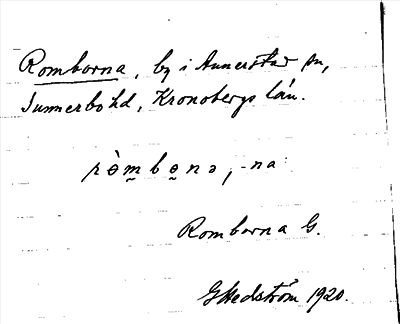 Romborna, by i Annerstad sn,
Sunnerbo hd, Kronobergs län.
rò̱m̱bo̱nə, -na
Romborna G.
GHedström 1920.